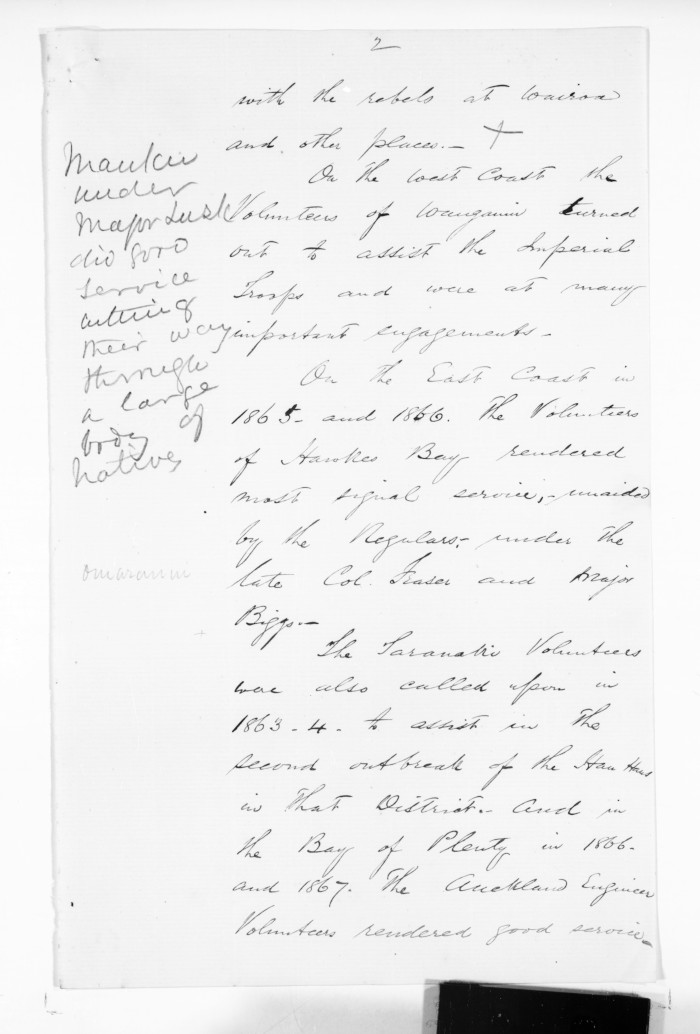 2
with the rebels at Wairoa
and other places. — +
On the West Coast the
Volunteers of Wanganui turned
out to assist the Imperial
Troops and were at many
important engagements —
On the East Coast in
1865 - and 1866. The Volunteers
of Hawkes Bay rendered
most signal service, - unaided
by the Regulars, - under the
late Col. Fraser and Major
Biggs. —
The Taranaki Volunteers
were also called upon in
1863 - 4 - to assist in the
second outbreak of the Hau Haus
in that District. - And in
the Bay of Plenty in 1866 -
and 1867. The Auckland Engineer
Volunteers rendered good service —
Mauku
under
Major Lusk
did good
service
cutting
their way
through
a large
body of
natives
Omaranui
+